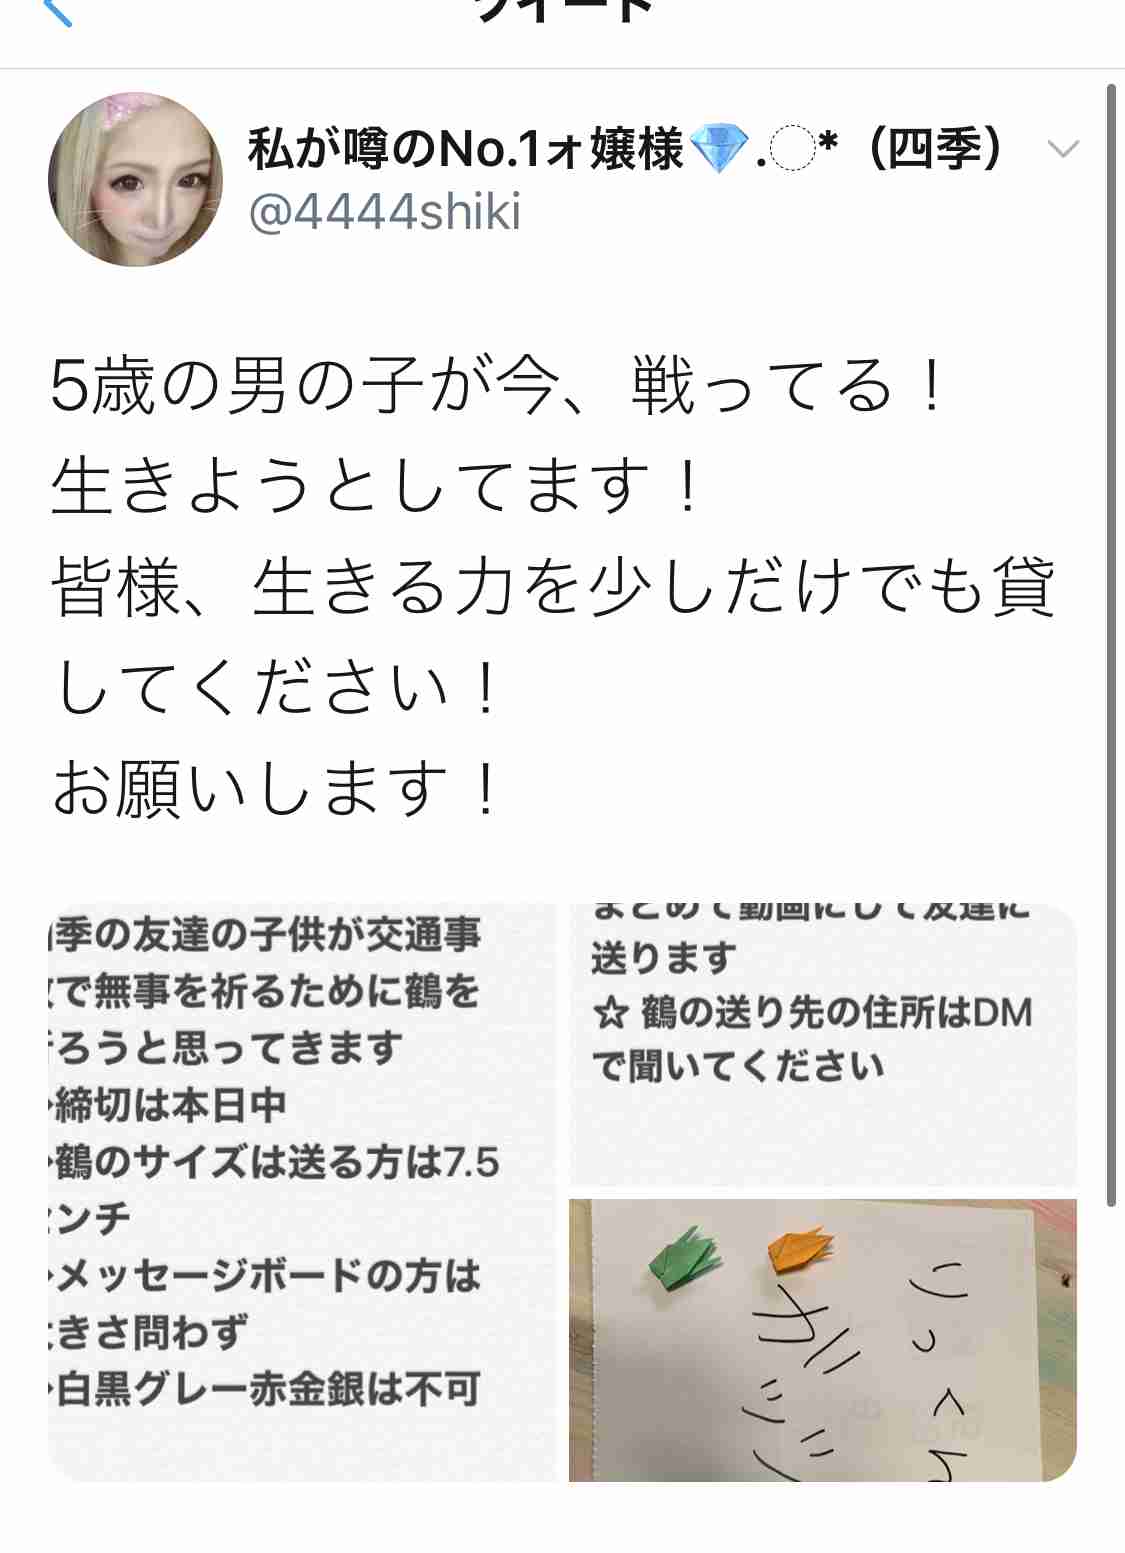 ツイート
私が噂のNo.1ォ嬢様💎.◌*（四季）
@4444shiki
5歳の男の子が今、戦ってる！
生きようとしてます！
皆様、生きる力を少しだけでも貸
してください！
お願いします！
季の友達の子供が交通事
で無事を祈るために鶴を
ろうと思ってきます
締切は本日中
鶴のサイズは送る方は7.5
ンチ
メッセージボードの方は
きさ問わず
白黒グレー赤金銀は不可
まとめて動画にして友達に
送ります
☆ 鶴の送り先の住所はDM
で聞いてください
りっくん
ガッツ